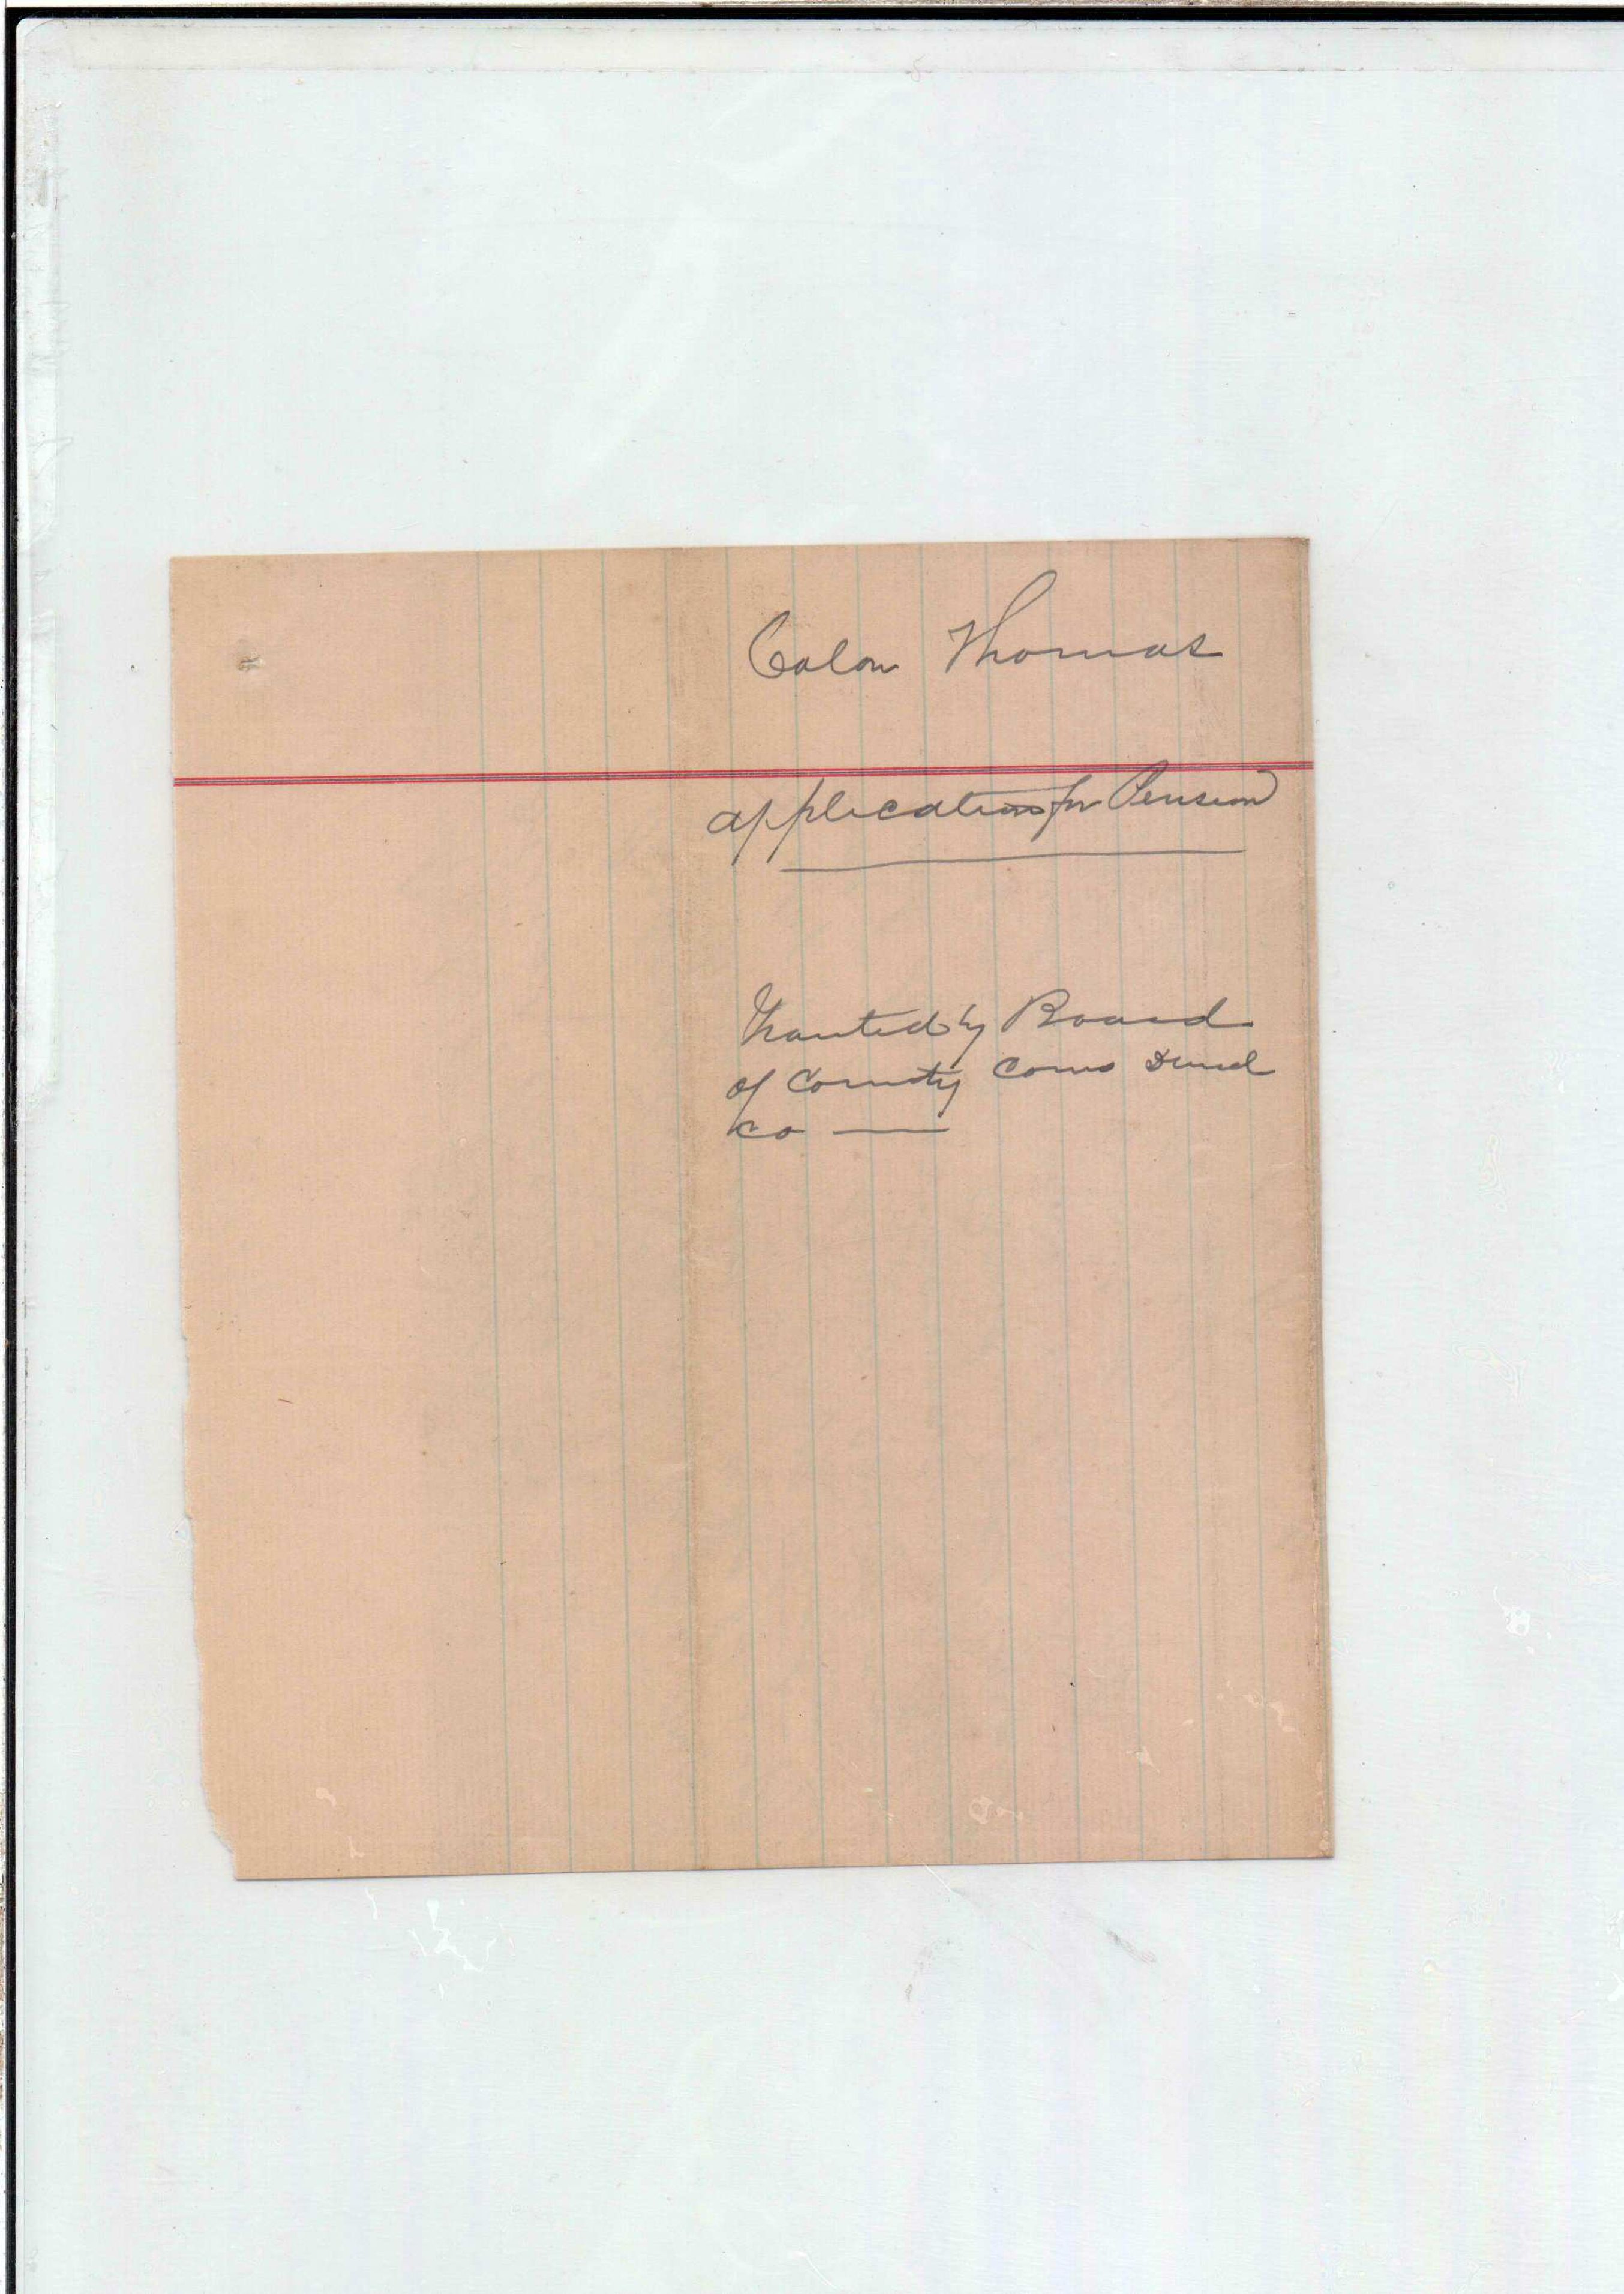 Colon Thomas
Application for Pension
Granted by Board
of County Coms Duval
Co —